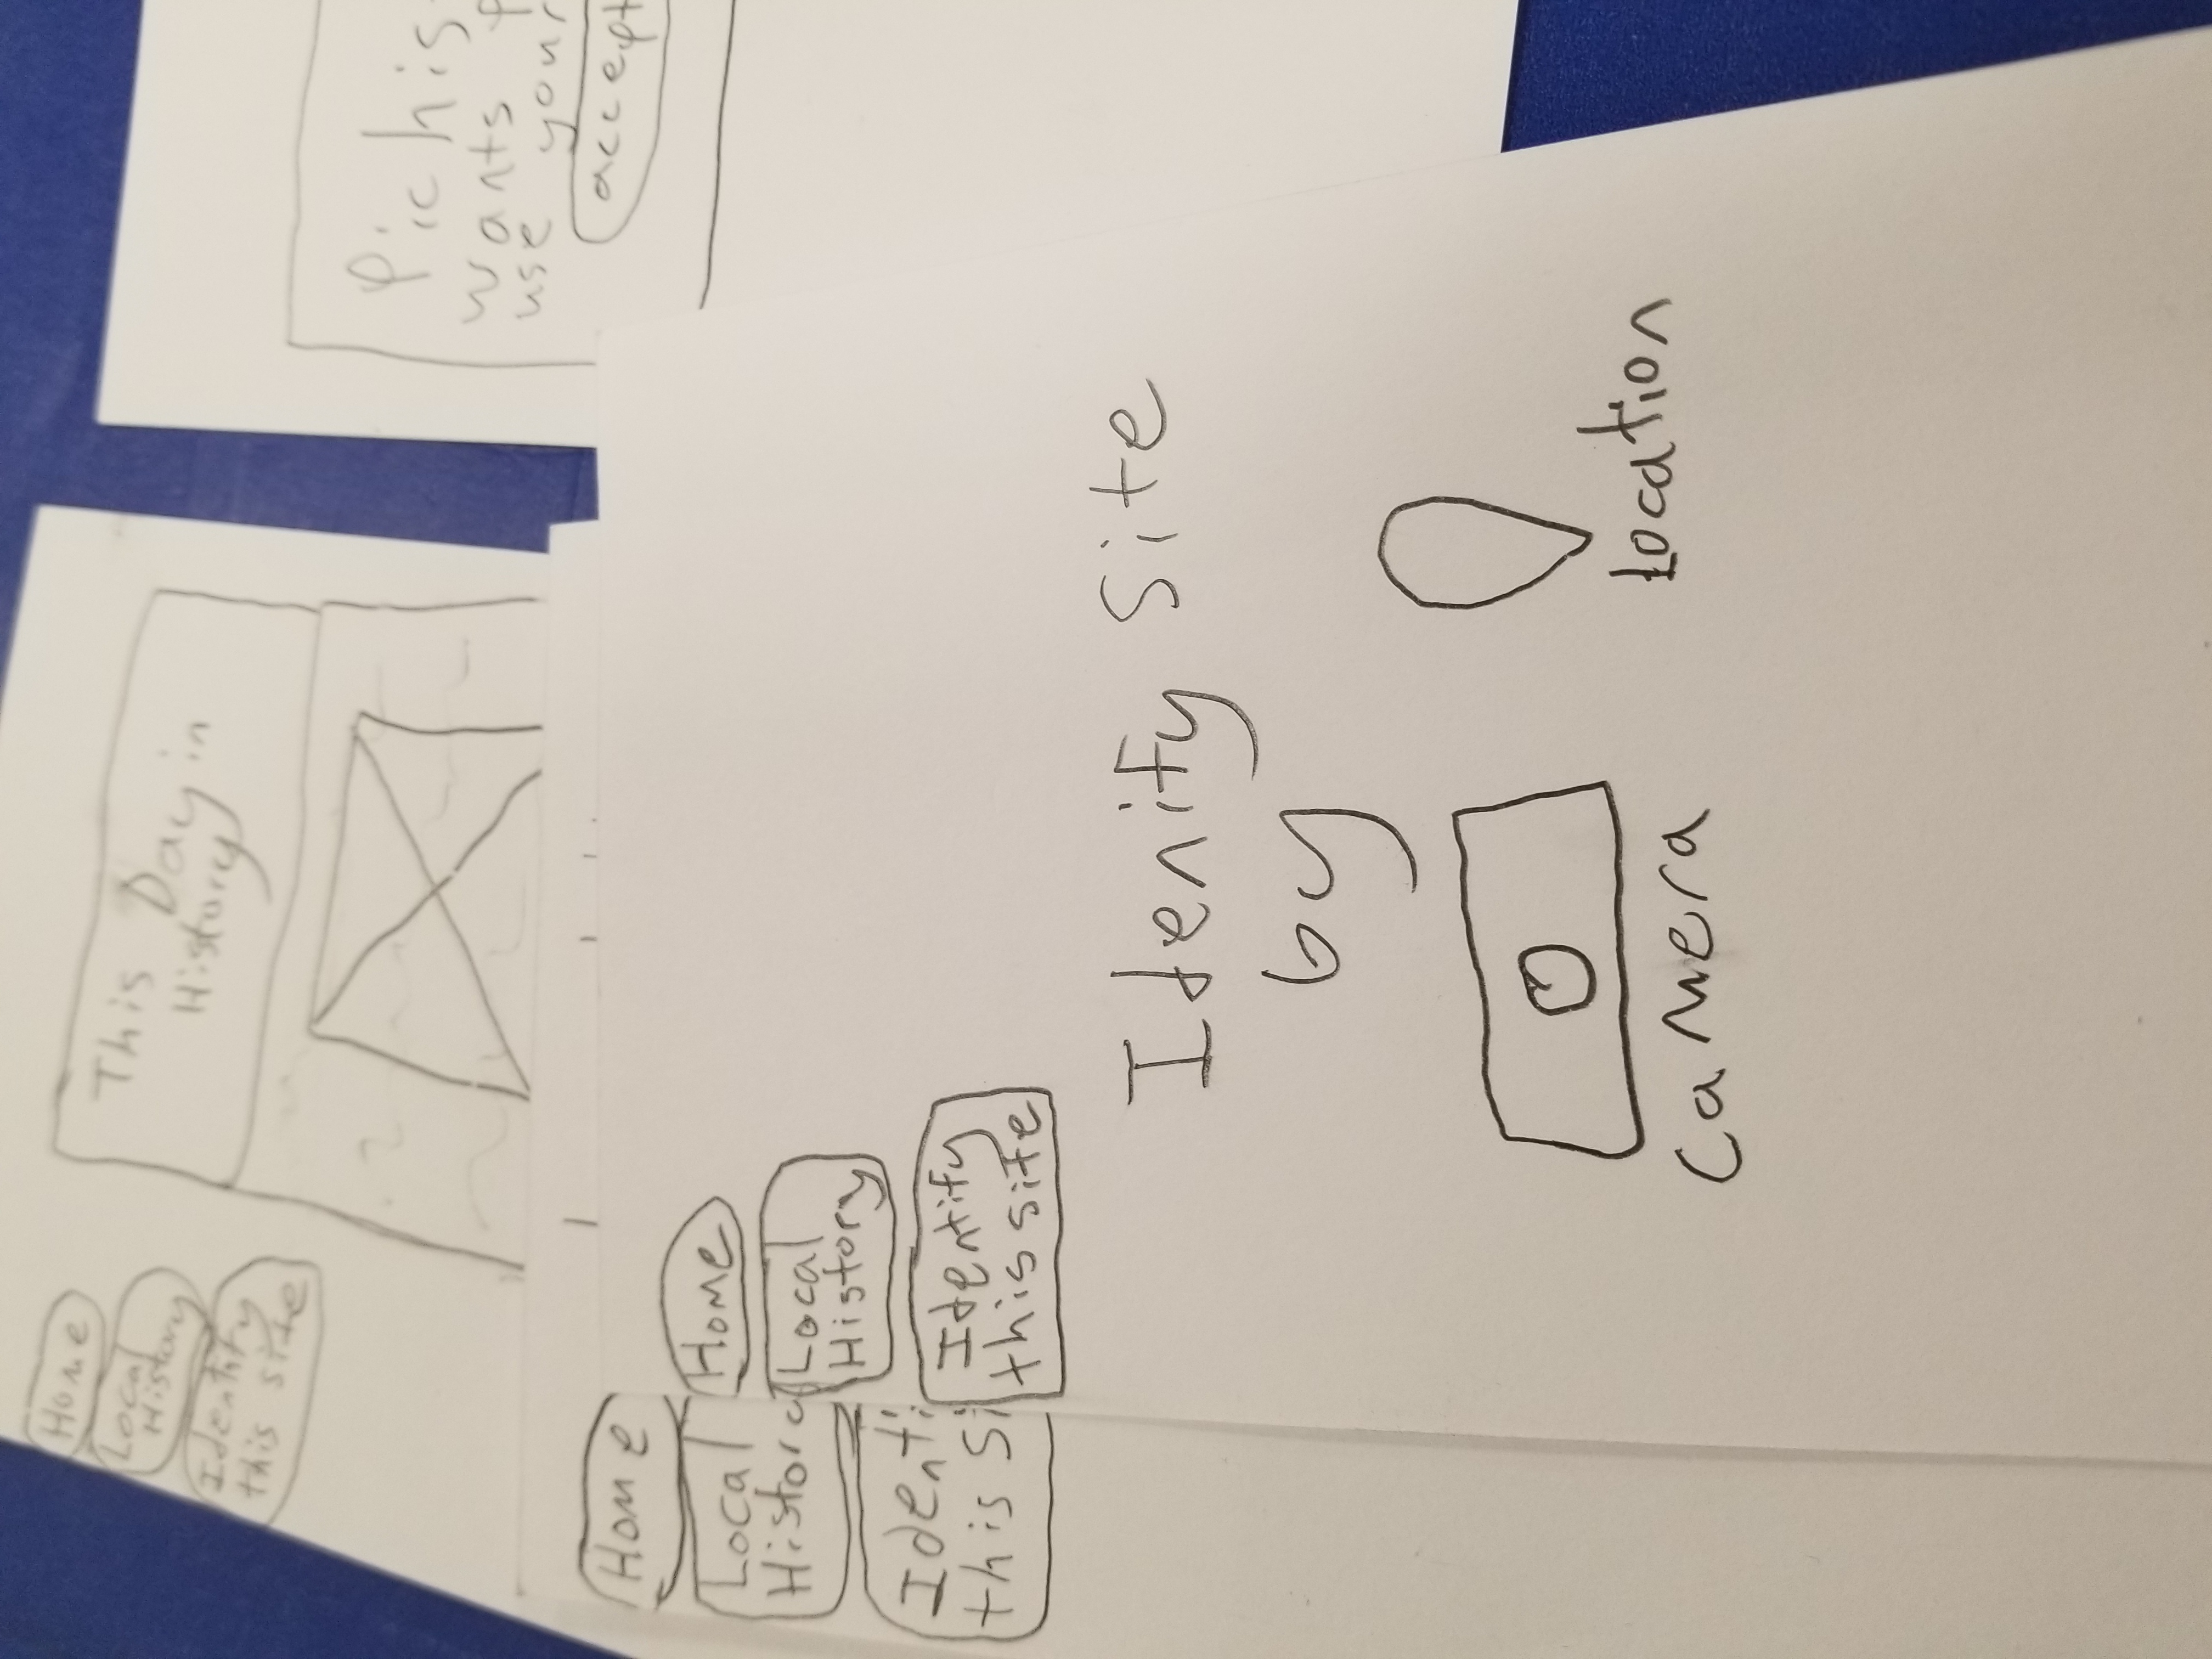 Home
Local
History
Identify
this site
This Day in
History
Pichis
wants
use your
accept
Home
Local
Histor
Identi
this Si
Home
Local
History
Identify
this site
Idenify Site
by
Camera
Location